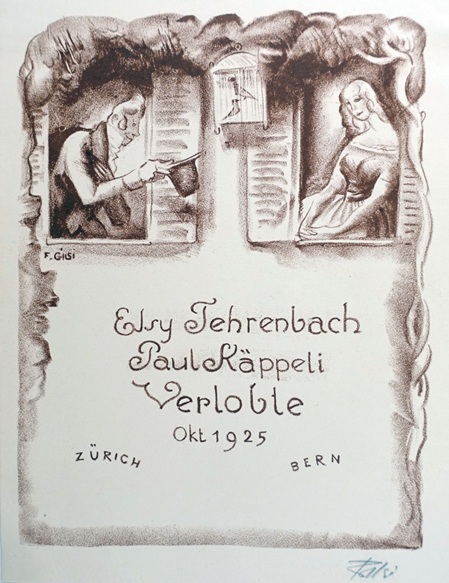 F. GILSI
Elsy Fehrenbach
Paul Käppeli
Verlobte
Okt 1925
ZÜRICH BERN
F. Gilsi